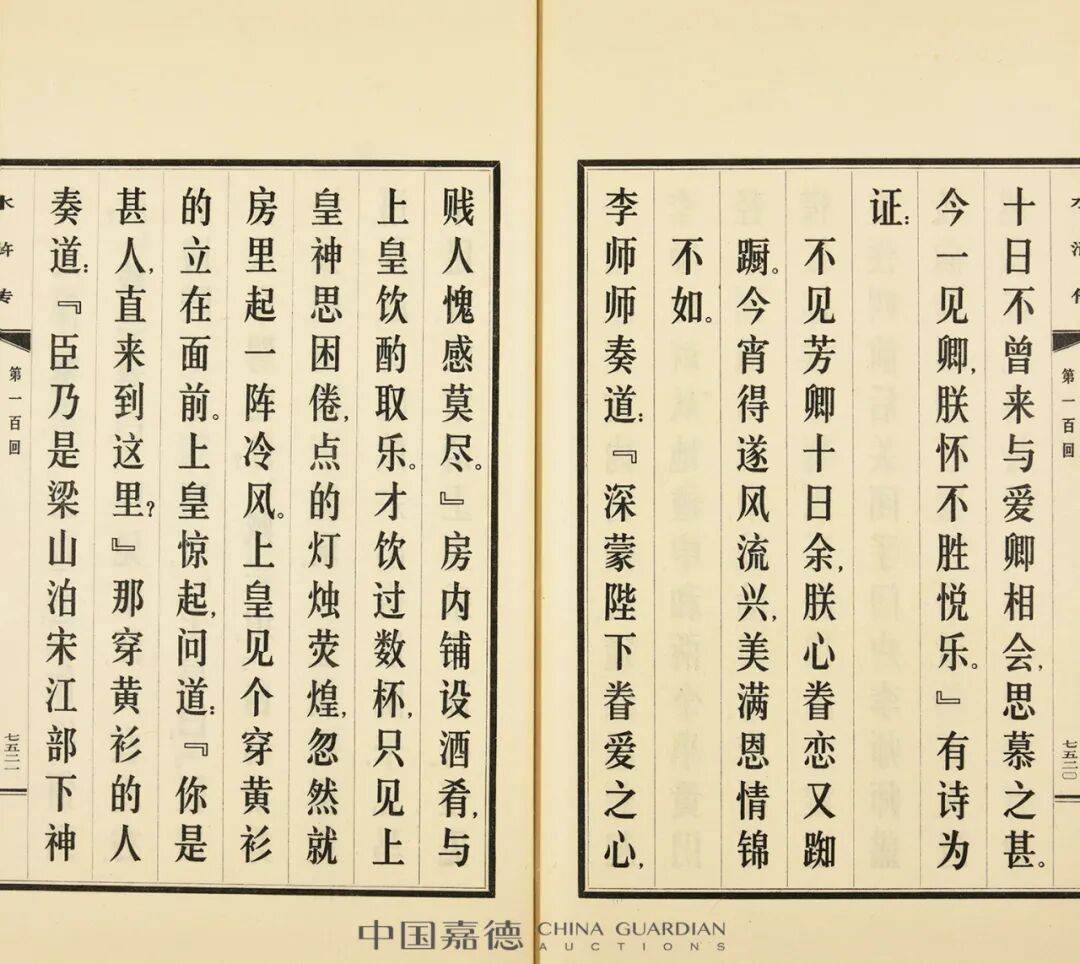 水浒传
第一百回
七五二〇
十日不曾来与爱卿相会，思慕之甚。
今一见卿，朕怀不胜悦乐。』有诗为
证：
不见芳卿十日余，朕心眷恋又踟
蹰。今宵得遂风流兴，美满恩情锦
不如。
李师师奏道：『深蒙陛下眷爱之心，
贱人愧感莫尽。』房内铺设酒肴，与
上皇饮酌取乐。才饮过数杯，只见上
皇神思困倦，点的灯烛荧煌，忽然就
房里起一阵冷风。上皇见个穿黄衫
的立在面前。上皇惊起，问道：『你是
甚人，直来到这里？』那穿黄衫的人
奏道：『臣乃是梁山泊宋江部下神
水浒传
第一百回
七五二一
中国嘉德 CHINA GUARDIAN
AUCTIONS